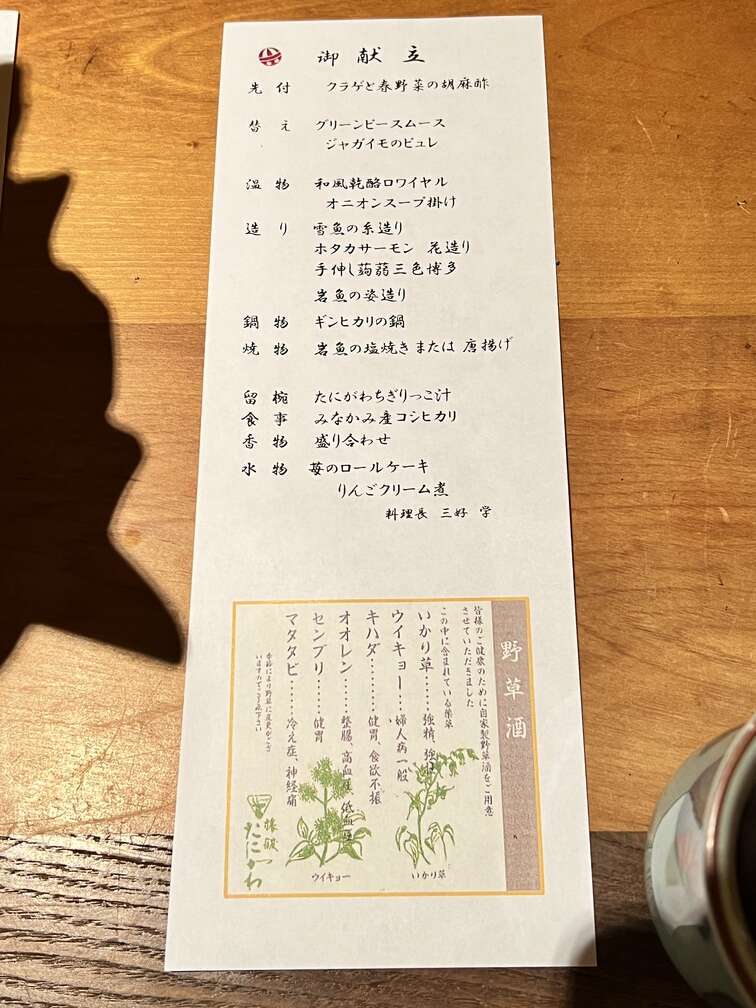 御献立
先付 クラゲと春野菜の胡麻酢
替え グリーンピースムース
ジャガイモのピュレ
温物 和風乾酪ロワイヤル
オニオンスープ掛け
造り 雪魚の糸造り
ホタカサーモン 花造り
手伸し蒟蒻三色博多
岩魚の姿造り
鍋物 ギンヒカリの鍋
焼物 岩魚の塩焼きまたは唐揚げ
留椀 たにがわちぎりっこ汁
食事 みなかみ産コシヒカリ
香物 盛り合わせ
水物 苺のロールケーキ
りんごクリーム煮
料理長 三好 学
野草酒
皆様のご健康のために自家製野草酒をご用意
させていただきました
この中に含まれている薬草
いかり草……強精、強壮
ウイキョー…婦人病一般
キハダ………健胃、食欲不振
オオレン……整腸、高血圧、低血圧
センブリ……健胃
マタタビ……冷え症、神経痛
季節により野草に変更がござ
いますのでご了承下さい
旅館
たにがわ
ウイキョー
いかり草